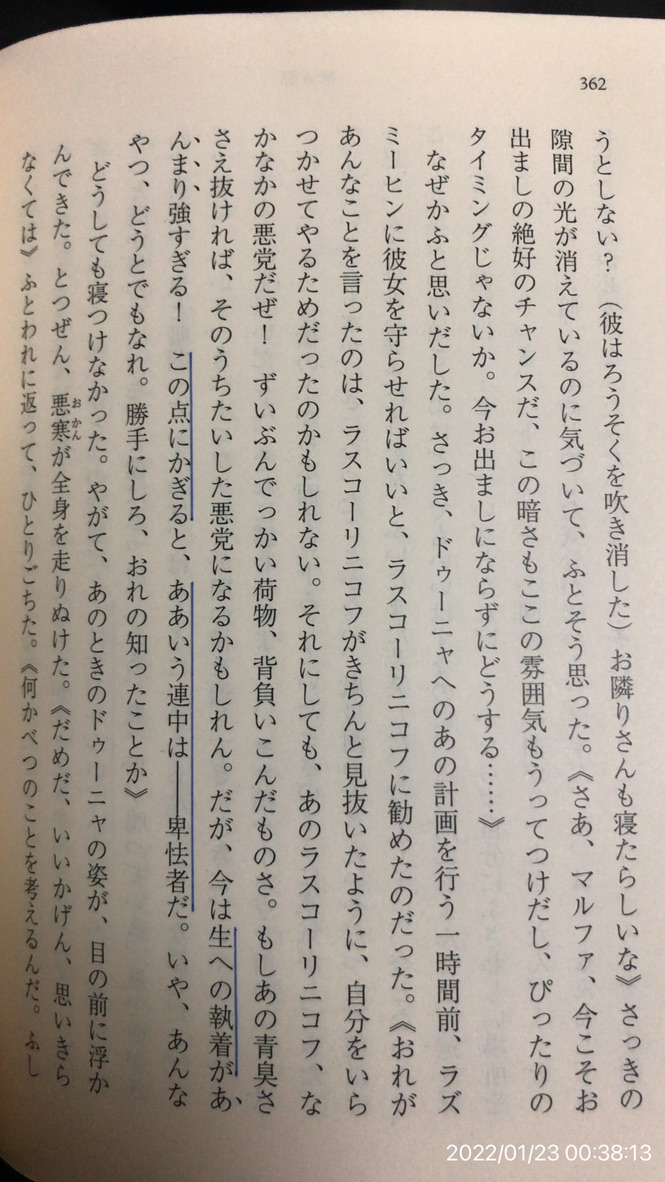 362
うとしない？（彼はろうそくを吹き消した）お隣りさんも寝たらしいな》さっきの
隙間の光が消えているのに気づいて、ふとそう思った。《さあ、マルファ、今こそお
出ましの絶好のチャンスだ、この暗さもここの雰囲気もうってつけだし、ぴったりの
タイミングじゃないか。今お出ましにならずにどうする……》
なぜかふと思いだした。さっき、ドゥーニャへのあの計画を行う一時間前、ラズ
ミーヒンに彼女を守らせればいいと、ラスコーリニコフに勧めたのだった。《おれが
あんなことを言ったのは、ラスコーリニコフがきちんと見抜いたように、自分をいら
つかせてやるためだったのかもしれない。それにしても、あのラスコーリニコフ、な
かなかの悪党だぜ！　ずいぶんでっかい荷物、背負いこんだものさ。もしあの青臭さ
さえ抜ければ、そのうちたいした悪党になるかもしれん。だが、今は生への執着があ
んまり強すぎる！　この点にかぎると、ああいう連中は――卑怯者だ。いや、あんな
やつ、どうとでもなれ。勝手にしろ、おれの知ったことか》
どうしても寝つけなかった。やがて、あのときのドゥーニャの姿が、目の前に浮か
んできた。とつぜん、悪寒が全身を走りぬけた。《だめだ、いいかげん、思いきら
おかん
なくては》ふとわれに返って、ひとりごちた。《何かべつのことを考えるんだ。ふし
2022/01/23 00:38:13